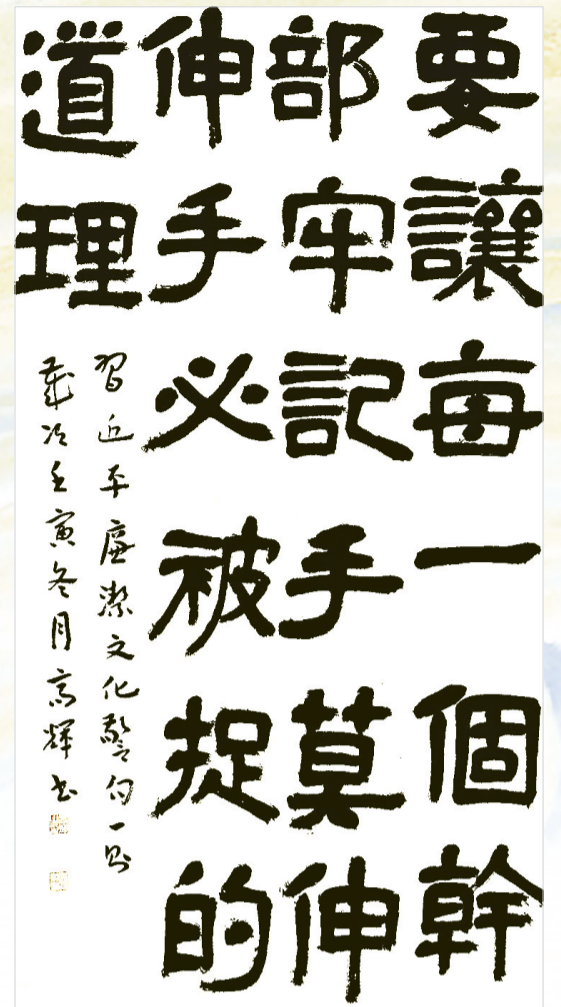 要讓每一個幹
部牢記手莫伸
伸手必被捉的
道理
習近平廉潔文化警句一則
歲次壬寅冬月高輝书